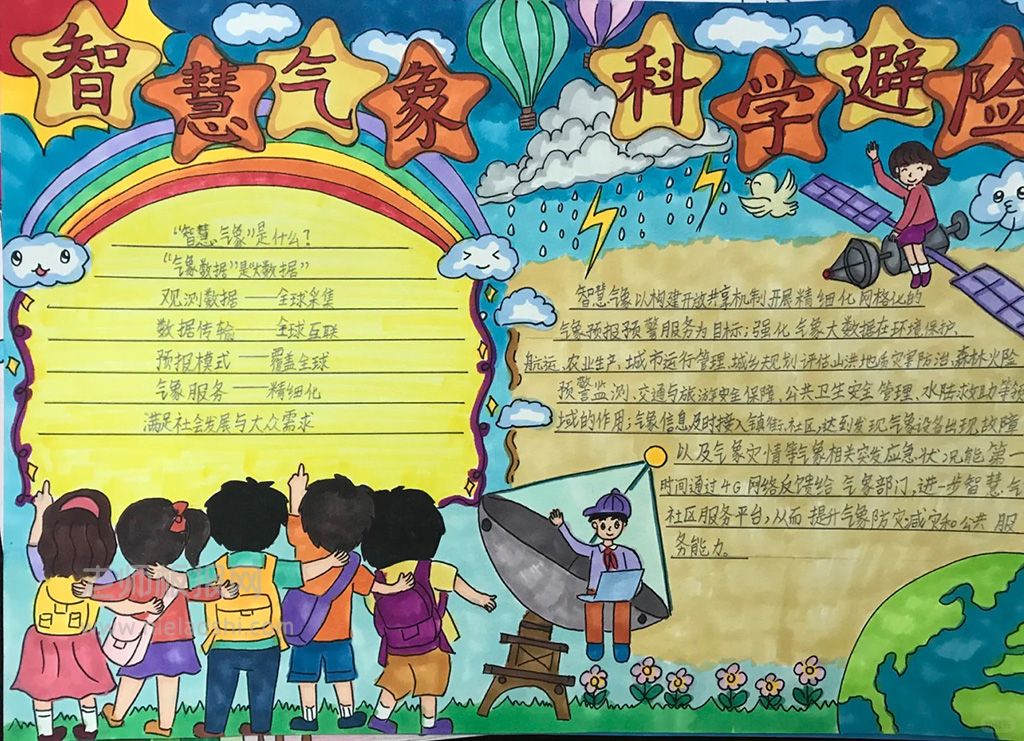 智慧气象 科学避险
“智慧气象”是什么?
“气象数据”是“大数据”
观测数据——全球采集
数据传输——全球互联
预报模式——覆盖全球
气象服务——精细化
满足社会发展与大众需求
智慧气象以构建开放共享机制开展精细化网格化的
气象预报预警服务为目标;强化气象大数据在环境保护、
航运、农业生产、城市运行管理、城乡规划评估山洪地质灾害防治、森林火险
预警监测、交通与旅游安全保障、公共卫生安全管理、水陆求助等
域的作用;气象信息及时接入镇街、社区;达到发现气象设备出现故障
以及气象灾情等气象相关突发应急状况能第一
时间通过4G网络反馈给气象部门,进一步智慧气
社区服务平台,从而提升气象防灾减灾和公共服
务能力。
老师板报网